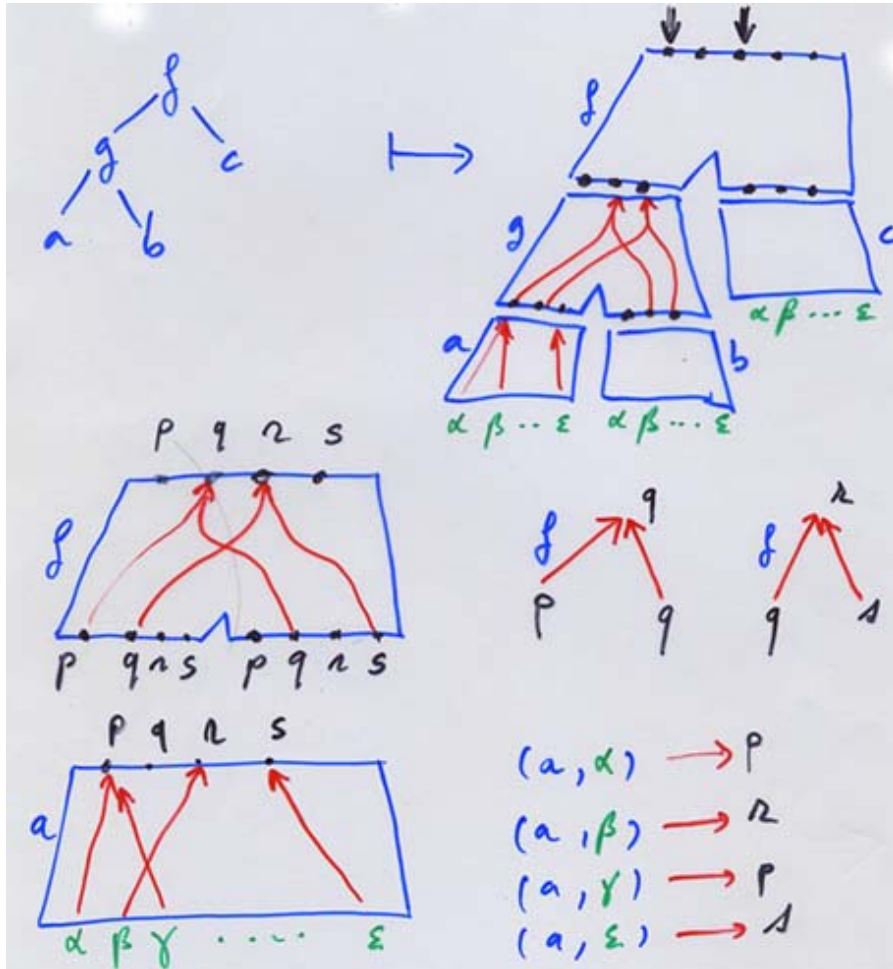 f
g c
a b
f
g c
α β ... ε
a b
α β .. ε α β ... ε
p q r s
f
p q r s p q r s
q r
f f
p q q s
p q r s
a
α β γ ..... ε
(a, α) → p
(a, β) → r
(a, γ) → p
(a, ε) → s